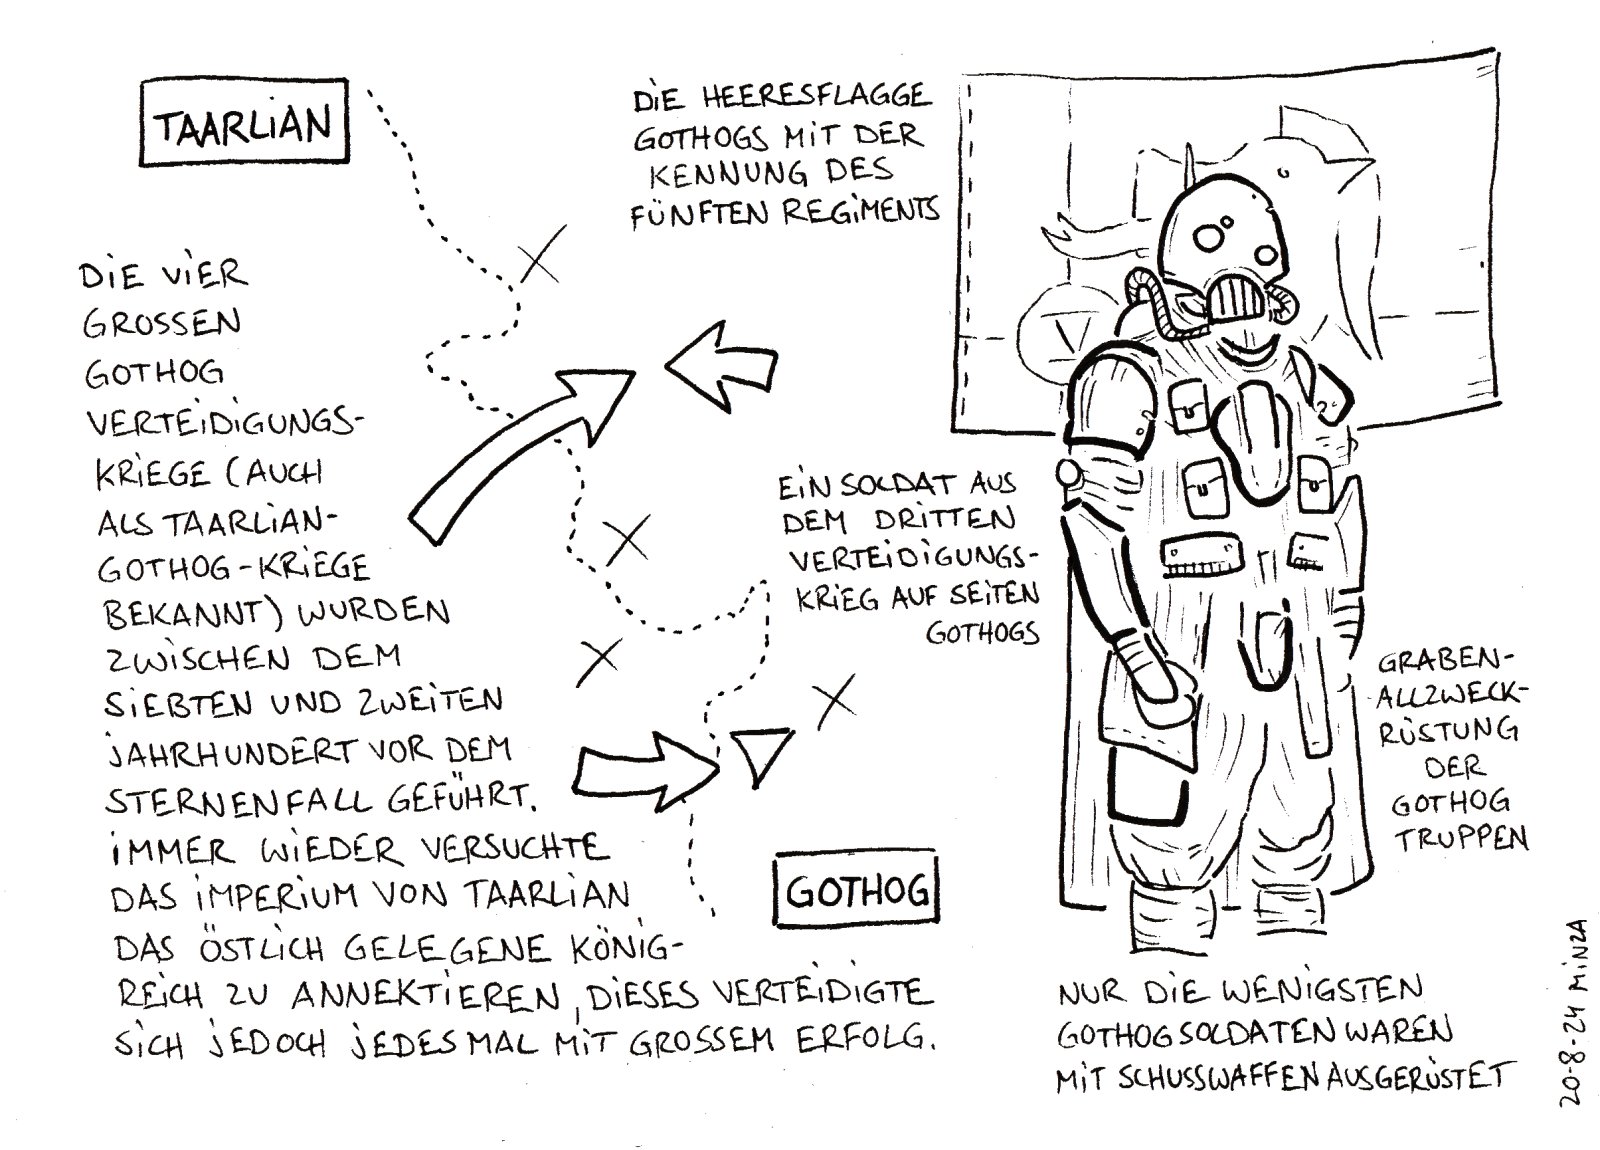 TAARLIAN
DIE VIER
GROSSEN
GOTHOG
VERTEIDIGUNGS-
KRIEGE (AUCH
ALS TAARLIAN-
GOTHOG-KRIEGE
BEKANNT) WURDEN
ZWISCHEN DEM
SIEBTEN UND ZWEITEN
JAHRHUNDERT VOR DEM
STERNENFALL GEFÜHRT.
IMMER WIEDER VERSUCHTE
DAS IMPERIUM VON TAARLIAN
DAS ÖSTLICH GELEGENE KÖNIG-
REICH ZU ANNEKTIEREN, DIESES VERTEIDIGTE
SICH JEDOCH JEDES MAL MIT GROSSEM ERFOLG.
GOTHOG
DIE HEERESFLAGGE
GOTHOGS MIT DER
KENNUNG DES
FÜNFTEN REGIMENTS
EIN SOLDAT AUS
DEM DRITTEN
VERTEIDIGUNGS-
KRIEG AUF SEITEN
GOTHOGS
V
GRABEN-
ALLZWECK-
RÜSTUNG
DER
GOTHOG
TRUPPEN
NUR DIE WENIGSTEN
GOTHOGSOLDATEN WAREN
MIT SCHUSSWAFFEN AUSGERÜSTET
20-8-24 MINZA